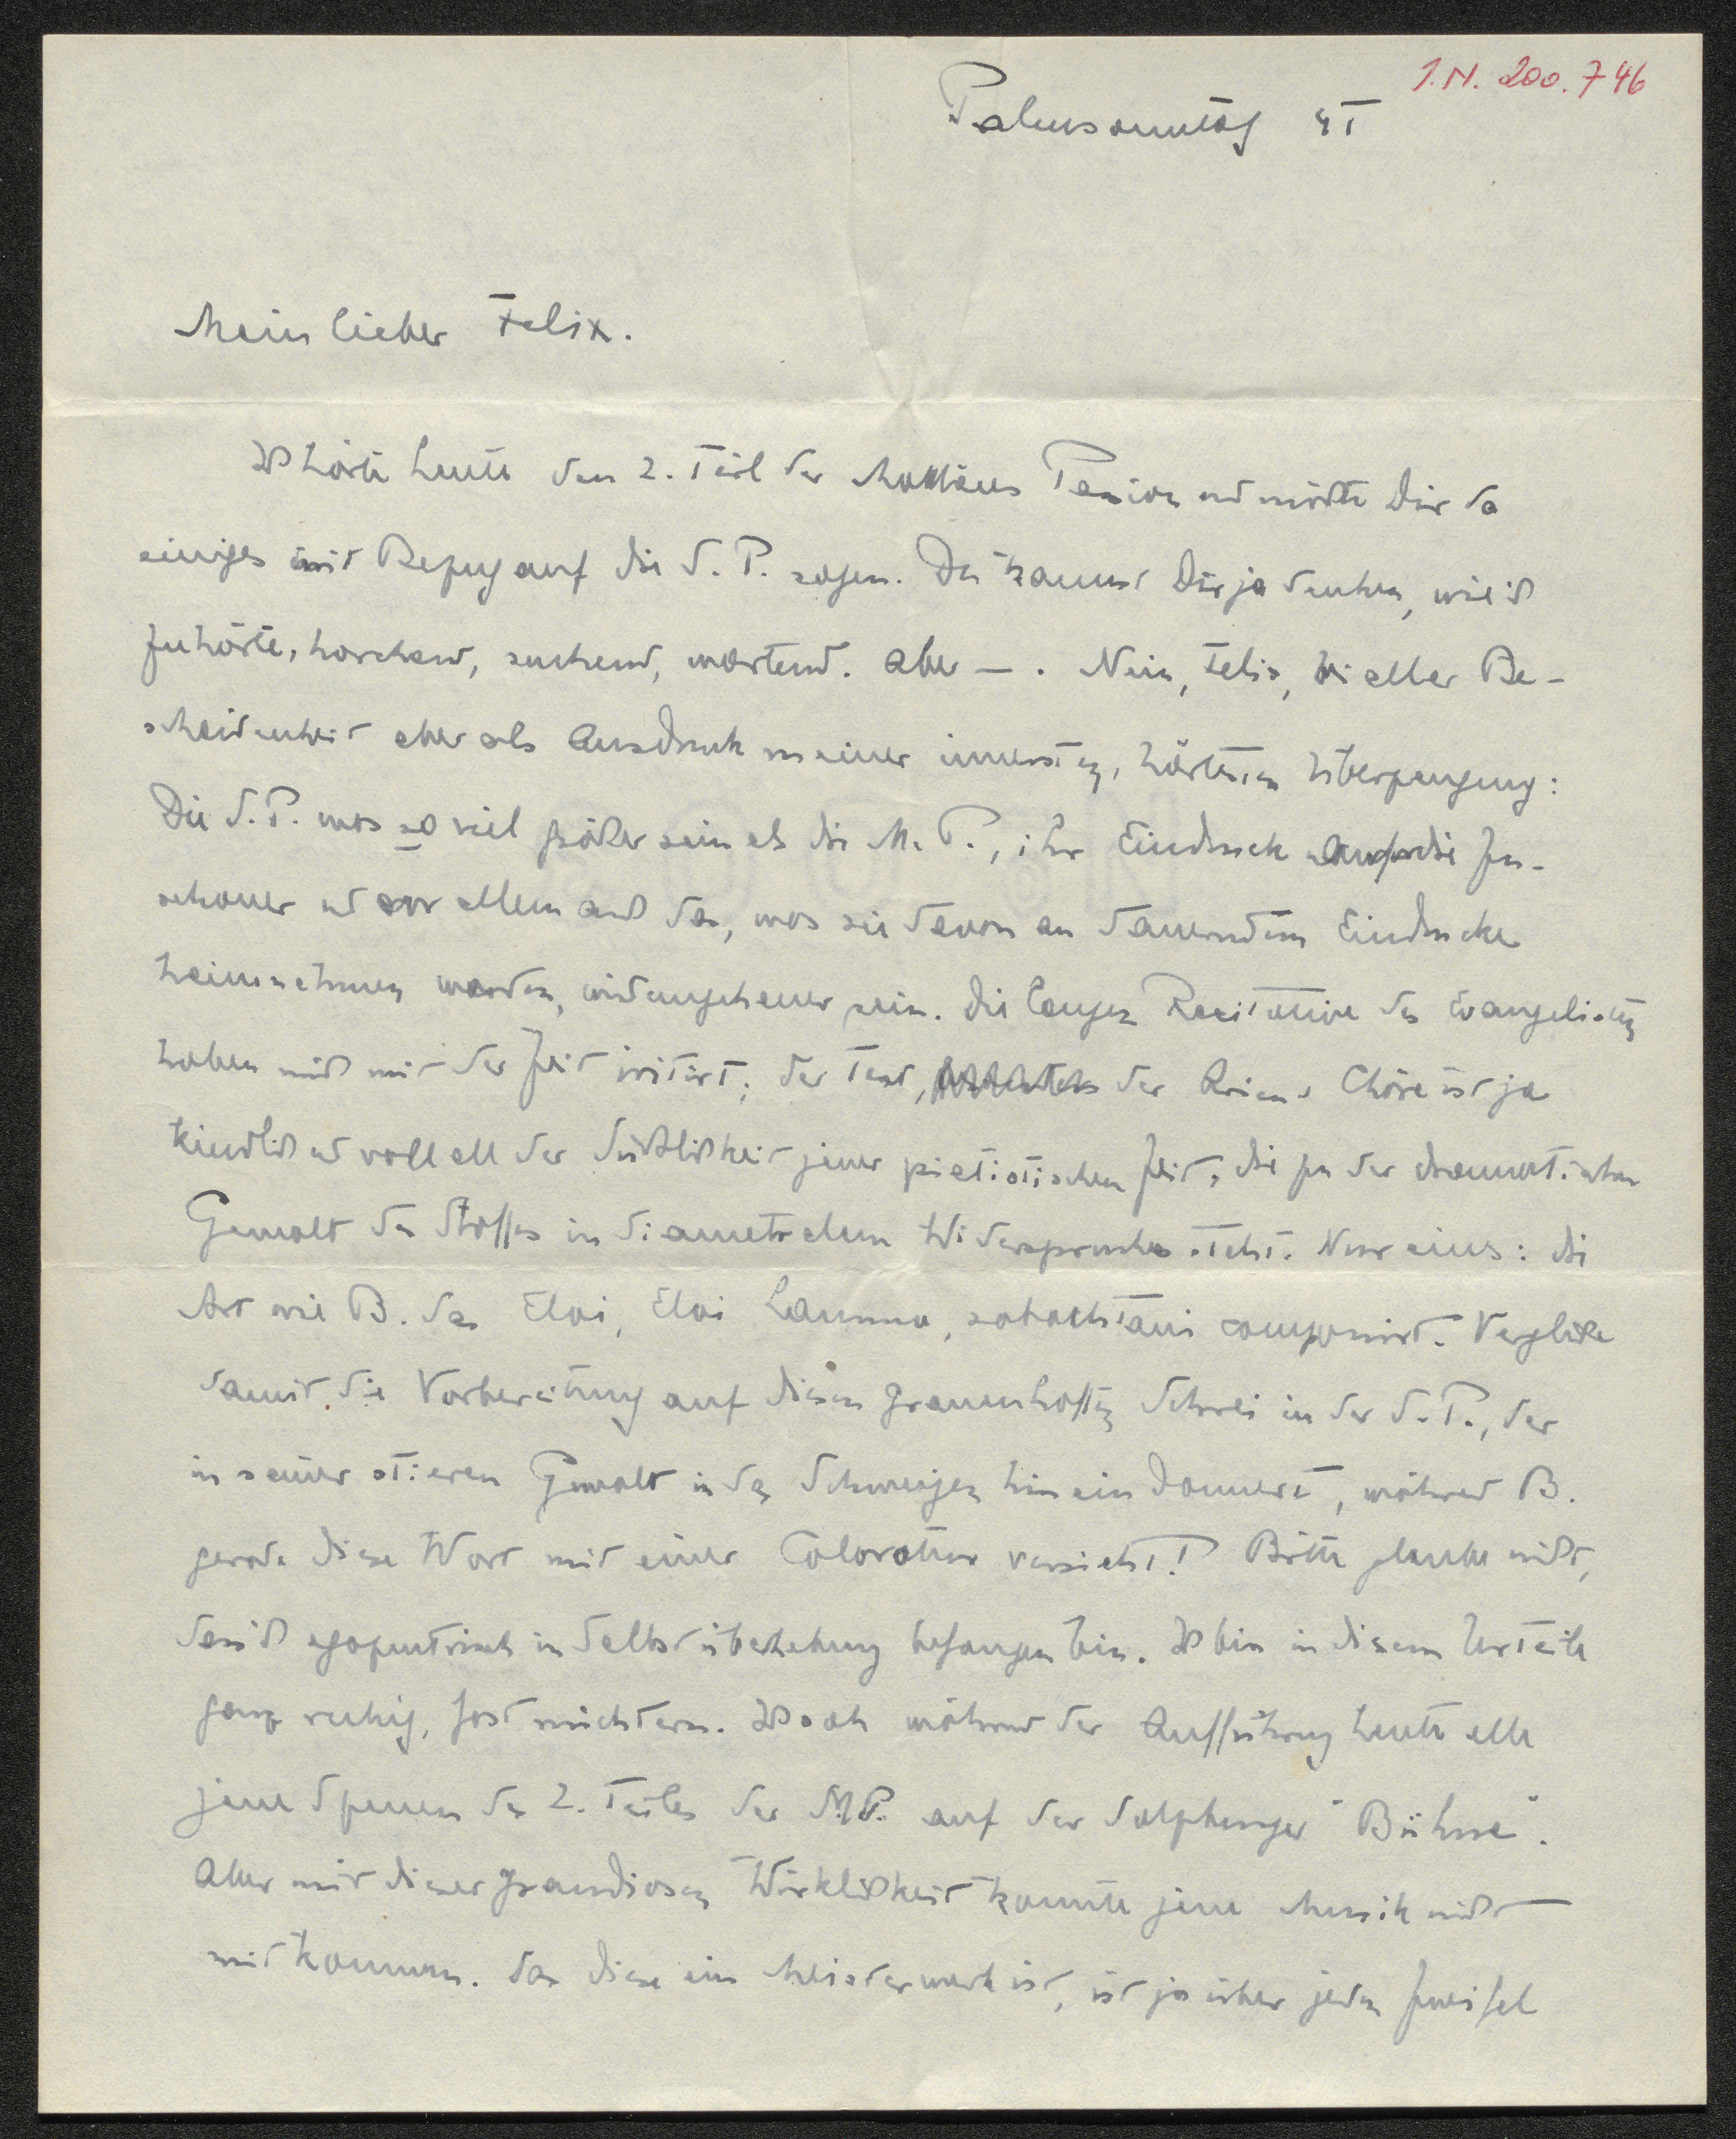 I.N. 200.746
Palmsonntag 41
Mein lieber Felix.
Ich hörte heute den 2. Teil der Mattäus Passion und möchte Dir da
einiges mit Bezug auf die S. P. sagen. Du kannst Dir ja denken, wie ich
zuhörte, horchend, suchend, wartend. Aber — . Nein, Felix, bei aller Be-
scheidenheit aber als Ausdruck meiner innersten, härtesten Überzeugung:
Die S. P. muss so viel größer sein als die M. P., ihr Eindruck auf die Zu-
schauer und vor allem auch das, was sie davon an dauerndem Eindrucke
heimnehmen werden, wird ungeheuer sein. Die langen Recitative des Evangelisten
haben mich mit der Zeit irritiert; der Text, der Arien u Chöre ist ja
kindlich und voll all der Süßlichkeit jener pietistischen Zeit, die zu der dramatischen
Gewalt des Stoffes in diametralem Widerspruche steht. Nur eines: die
Art wie B. das Eloi, Eloi Lamma, sabachtani componirt. Vergleiche
damit die Vorbereitung auf diesen grauenhaften Schrei in der S. P., der
in seiner stieren Gewalt in das Schweigen hineindonnert, während B.
gerade diese Wort mit einer Coloratur versieht! Bitte glaube nicht,
dass ich egozentrisch in Selbstüberhebung befangen bin. Ich bin in diesem Urteile
ganz ruhig, fast nüchtern. Ich sah während der Aufführung heute alle
jene Szenen des 2. Teiles der M.P. auf der Salzburger "Bühne".
Aber mit dieser grandiosen Wirklichkeit konnte jene Musik nicht
mitkommen. Das diese ein Meisterwerk ist, ist ja über jeden Zweifel